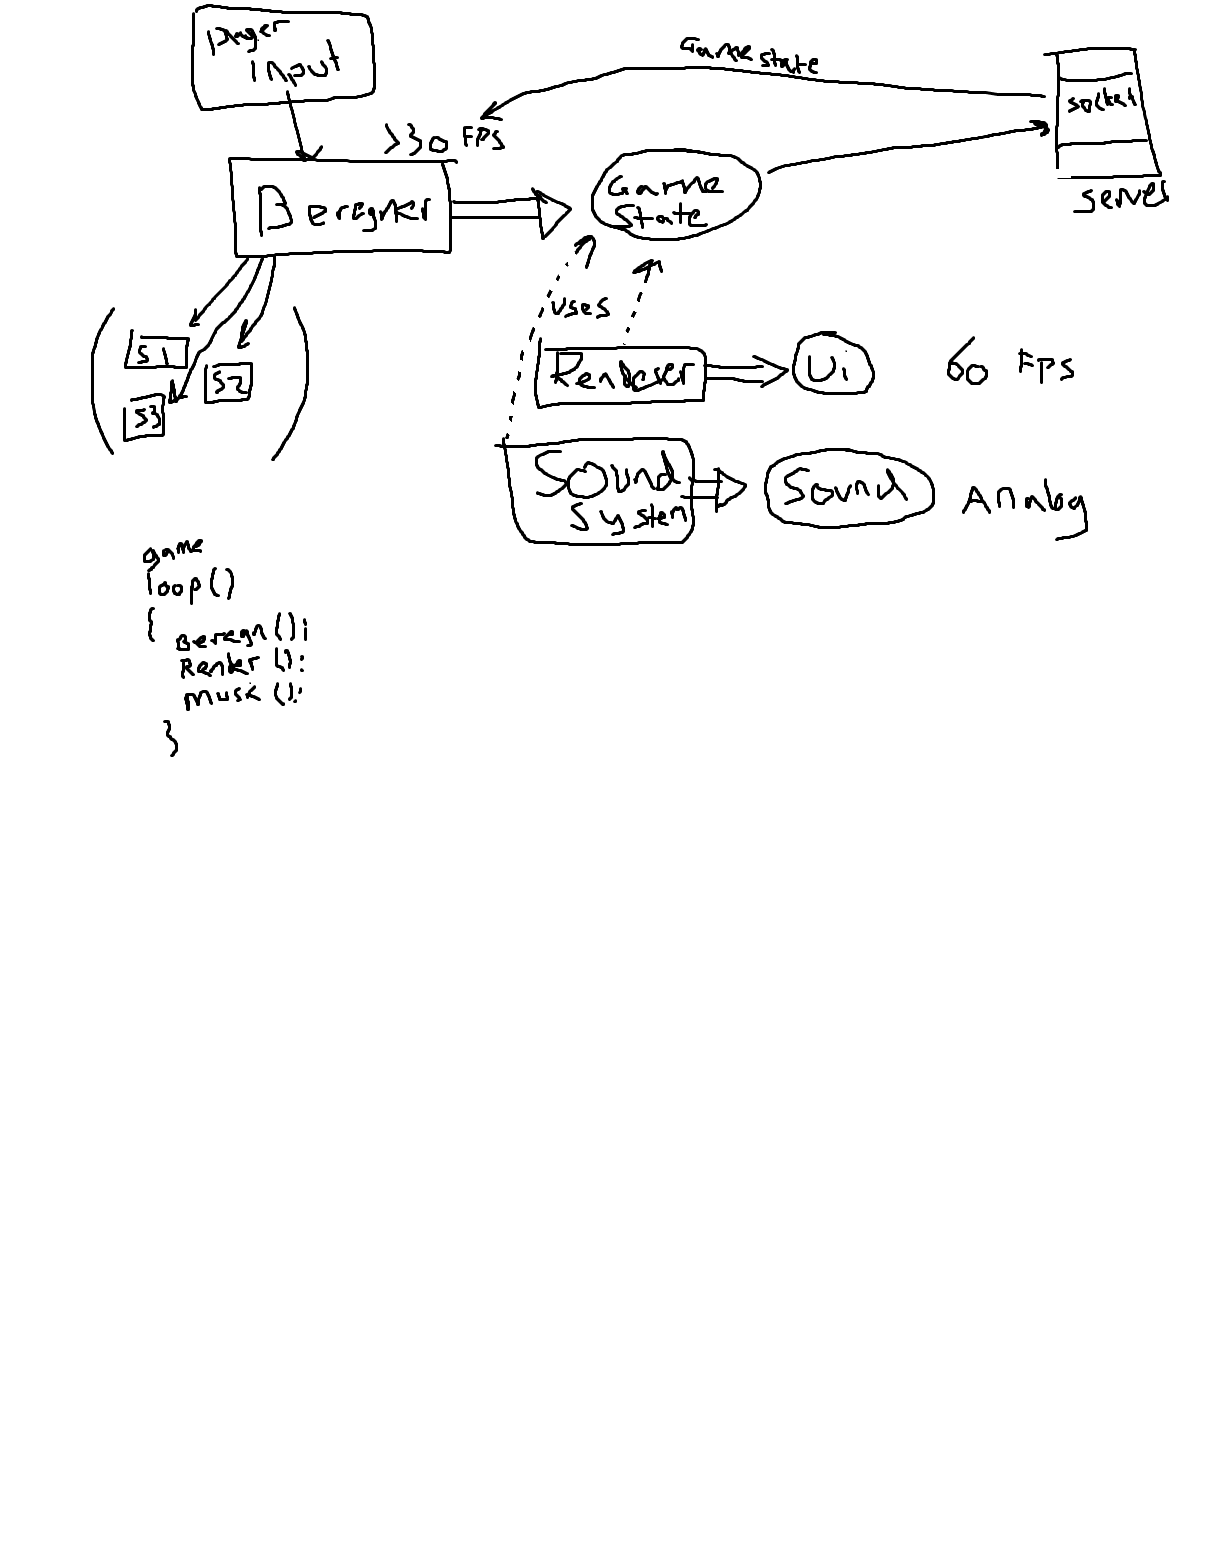 player
input
Game state
socket
server
>30 FPS
Beregner
Game
State
uses
S1
S2
S3
Renderer
Ui
60 FPS
Sound
System
Sound
Analog
game
loop()
{
Beregn();
Render();
musik();
}